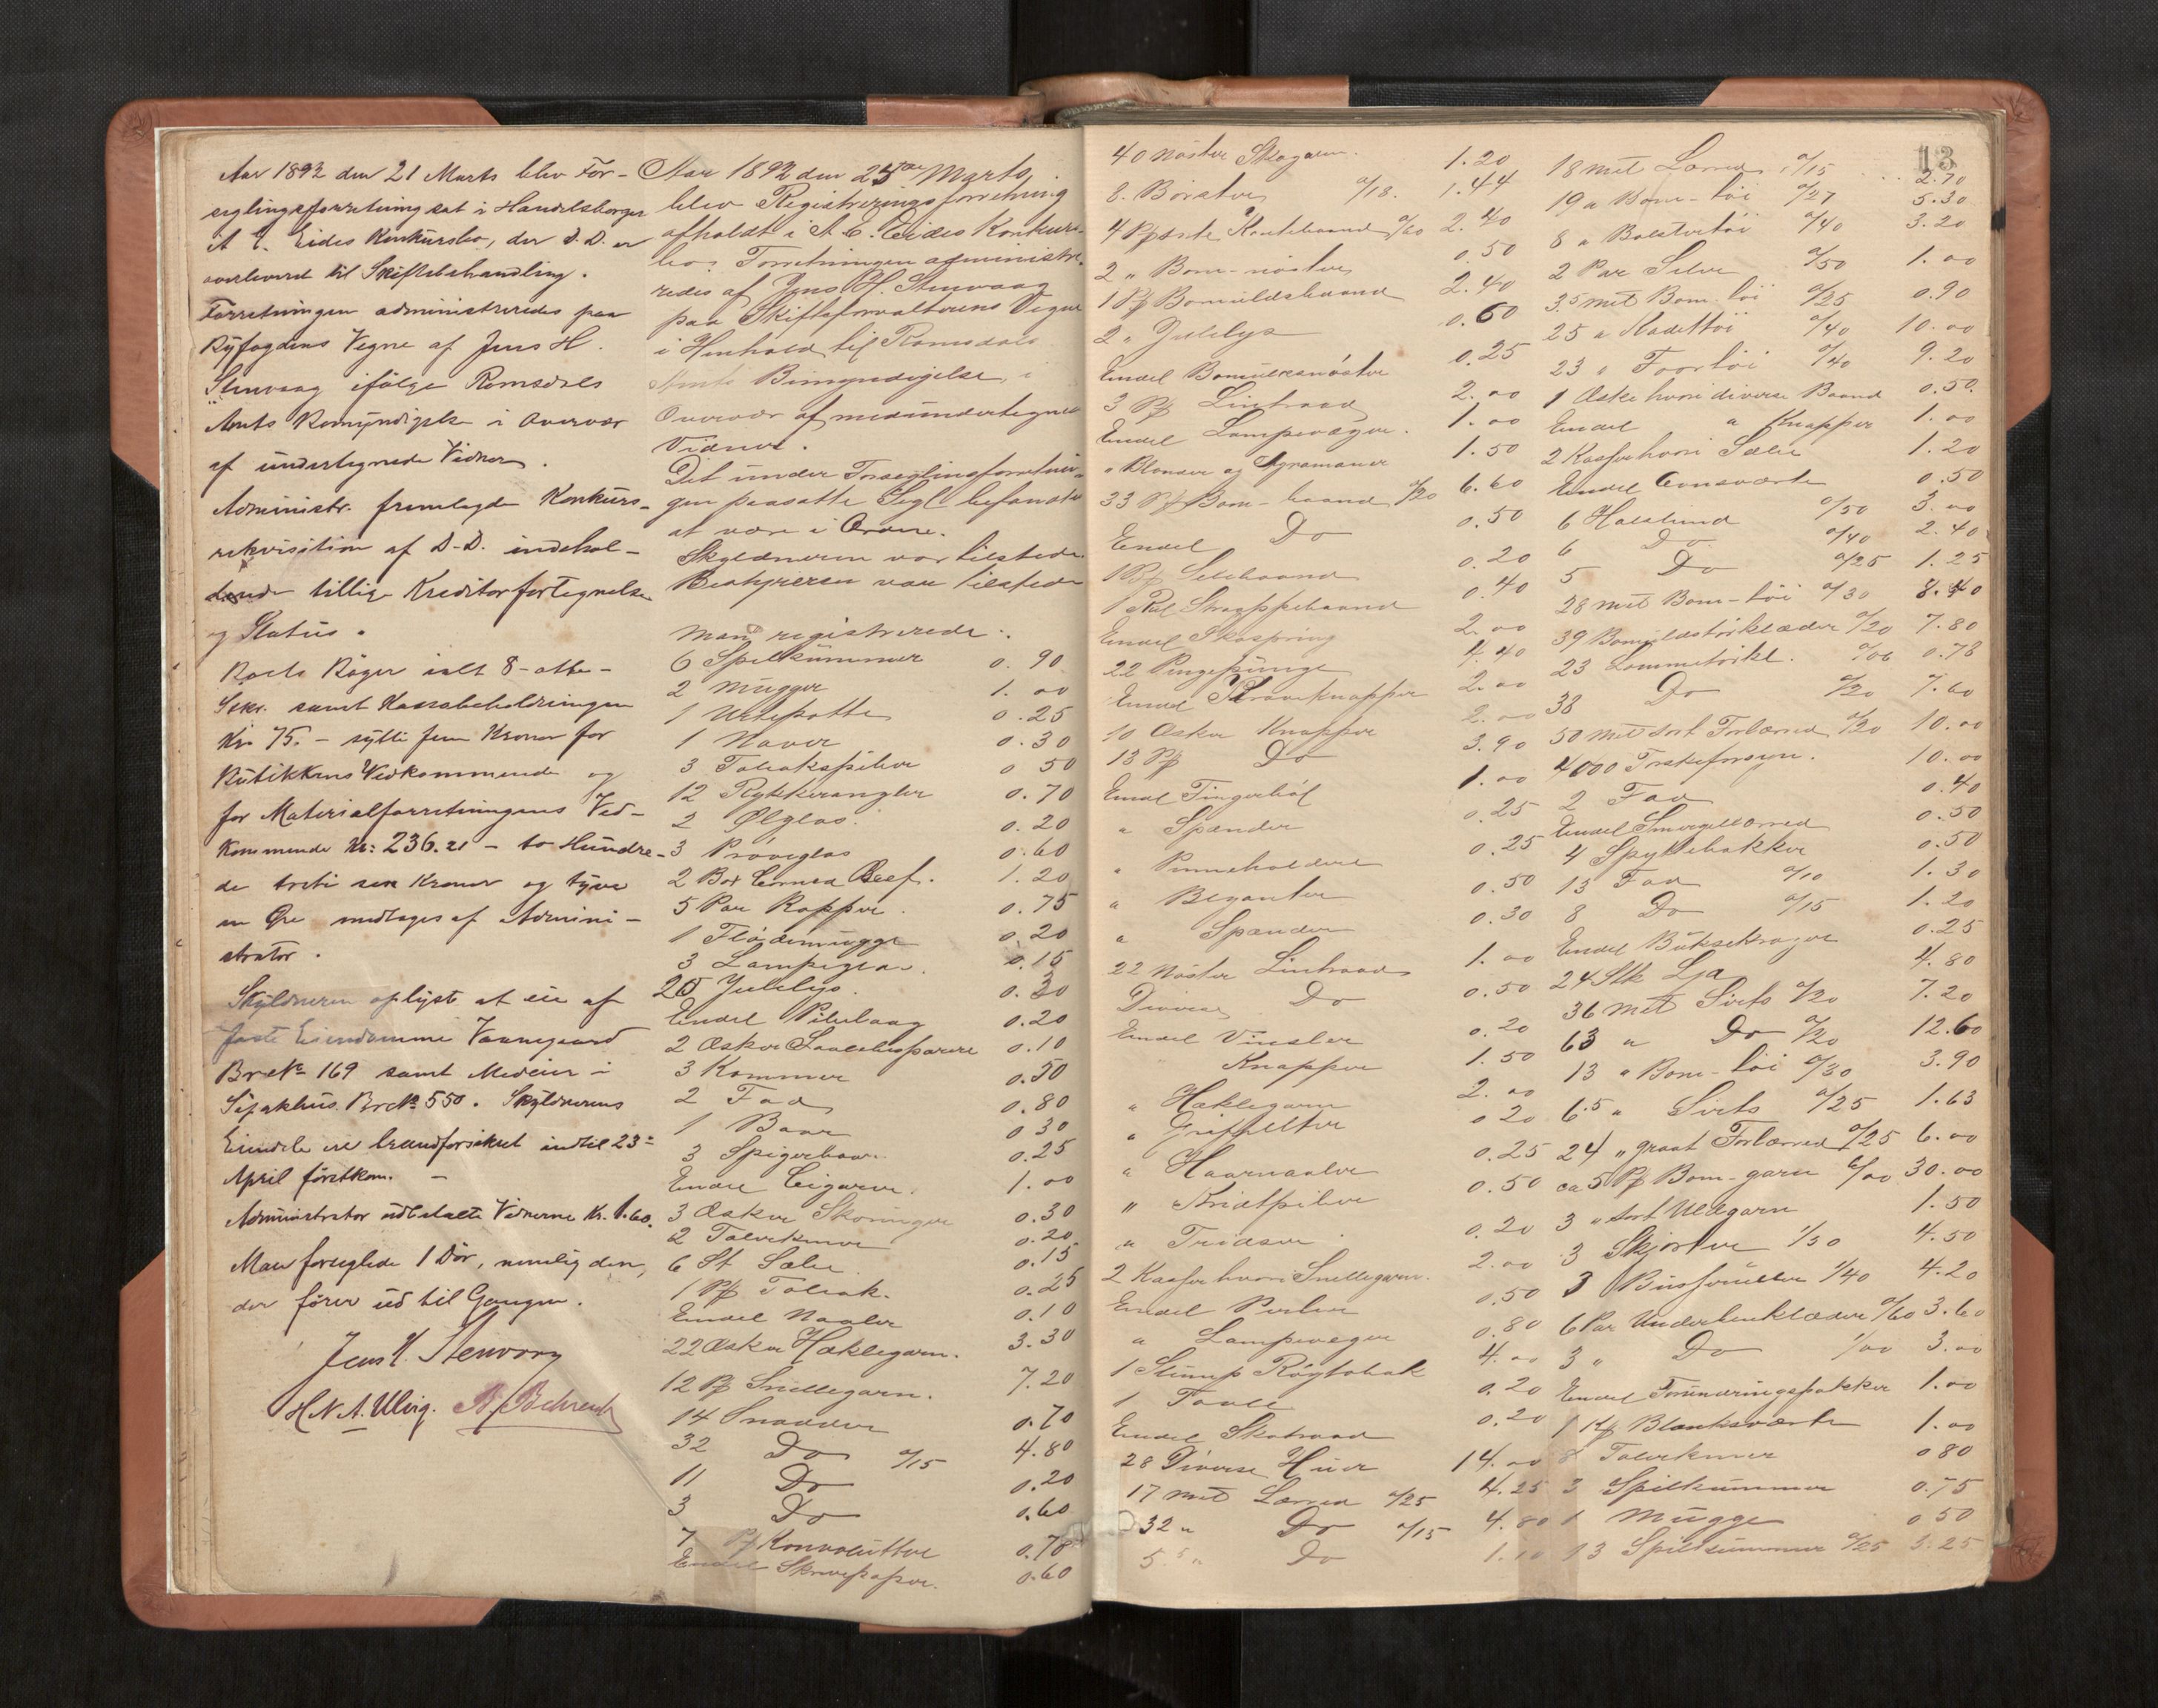 Aar 1892 den 21 Marts blev For-
seglingsforretning sat i Handelsborger
A. E. Eides Konkursbo, der D.D. er
overleveret til Skiftebehandling.
Forretningen administreredes paa
Byfogdens Vegne af Jens H.
Stenvaag ifølge Romsdals
Amts Bemyndigelse i Overvær
af undertegnede Vidner.
Administr. fremlagde Konkurs-
rekvisition af D-D. indehol-
dende tillige Kreditorfortegnelse
og Status.
Bøger ialt 8-otte-
Stkr. samt Kassabeholdningen
Kr. 75.- sytti fem Kroner for
Butikkens Vedkommende og
for Materialforretningens Ved-
kommende Kr: 236.21 - to Hundre-
de treti sex Kroner og tyve
en Øre modtages af Admini-
strator.
Skyldneren oplyst at eie af
faste Eiendomme Vaanegaard
Br.№ 169 samt Medeier i
Søpakhus Br.№ 550. Skyldnerens
Eiendele ere brandforsikret indtil 23-
April førstkom. -
Administrator udbetalte Vidnerne Kr. 1.60.
Man forseglede 1 Dør, nemlig den,
der fører ud til Gangen.
Jens H. Stenvaag
H.N.A. Ulvig. B. Behrendt
Aar 1892 den 25de Marts
blev Registreringsforretning
afholdt i A. E. Eides Konkurs-
bo. Forretningen administre-
redes af Jens H. Stenvaag
paa Skifteforvalterens Vegne
i Henhold til Romsdals
Amts Bemyndigelse, i
Overvær af medundertegnede
Vidner.
Det under Forseglingsforretnin-
gen paasatte Segl befandtes
at være i Orden.
Skyldneren var tilstede
Bestyreren var tilstede
Man registrerede:
6 Spilkummer 0.90
2 Mugger 1.00
1 Urtepotte 0.25
1 Naver 0.30
3 Tobakspiber 0.50
12 Rykkerangler 0.70
2 Ølglas. 0.20
3 Prøveglas 0.60
2 Box Corned Beef. 1.20
5 Par Kopper. 0.75
1 Flødemugge 0.20
3 Lampeglas. 0.15
20 Julelys. 0.30
Endel Pibelaag 0.20
2 Æsker 0.10
3 Kammer 0.50
2 Fad 0.80
1 Baar 0.30
3 Spigerbaar 0.25
Endel Cigarer. 1.00
3 Æsker Skoringer 0.30
2 Talerkener 0.20
6 St. Sæbe. 0.15
1 Pf Tobak. 0.25
Endel Naaler 0.10
22 Æsker Hæklegarn. 3.30
12 Pf Snellegarn. 7.20
14 Snadder 0.70
32 Do a/15 4.80
11 Do 0.20
3 Do 0.60
7 Pf Konvolutter 0.70
Endel Skrivepapir. 0.60
40 Nøster Skogarn. 1.20
8. Børster a/18. 1.44
4 Pf sorte Kantebaand a/60 2.40
2 " Bom-nøster 0.50
1 Pf Bomuldsbaand 2.40
2 " Julelys 0.60
Endel Bomuldsnøster 0.25
3 Pf Lintraad 2.00
Endel Lampevæger. 1.00
" Blonder og Agramaner 1.50
33 Pf Bom-baand a/20 6.60
Endel Do 0.50
1 Pf Silkebaand 0.20
1 Rul Strappebaand 0.40
Endel Skospring 2.00
22 Pengepunge 4.40
Endel Kraveknapper 2.00
10 Æsker Knapper 2.00
13 Pf Do 3.90
Endel Fingerbøl 1.00
" Spænder 0.25
" Penneholdere 0.25
" Beganter 0.50
" Spænder 0.30
22 Nøster Lintraad 1.00
Diverse Do 0.50
Endel Vinsler 0.20
" Knapper 1.50
" Hæklegarn 2.00
" Grifelter 0.20
" Haarnaaler 0.25
" Kridtpiber 0.50
" Tridser 0.20
2 Kasser hvori Snellegarn. 2.00
Endel Perler 0.50
" Lampevæger 0.80
1 Stump Røgtobak 4.00
1 Tavle 0.20
Endel Skotraad 0.20
28 Diverse Huer 14.00
17 met Lærred a/25 4.25
32 " Do a/15 4.80
5.5 " Do 1.10
13
18 met Lærred a/15 2.70
19 " Bom-tøi a/27 5.30
8 " Bolstertøi a/40 3.20
2 Par Seler a/50 1.00
3.5 met Bom. tøi a/25 0.90
25 " Kadettøi a/40 10.00
23 " Foortøi a/40 9.20
1 Æske hvori diverse Baand 0.50.
Endel " Knapper 1.00
2 Kasser hvori Sæbe 1.20
Endel Ovnsværte 0.50
6 Halslind a/50 3.00
6 Do a/40 2.40
5 Do a/25 1.25
28 met Bom-tøi a/30 8.40
39 Bomuldstørklæder a/20 7.80
23 Lommetørkl. a/06 0.78
38 Do a/20 7.60
50 met sort Forlærred a/20 10.00
4000 Torskeforsyn. 10.00
2 Fad 0.40
Endel Smergellærred 0.50
4 Spyttebakker 0.50
13 Fad a/10 1.30
8 Do a/15 1.20
Endel Buksekroger 0.25
24 Stk Lja 4.80
36 met Sirts a/20 7.20
63 " Do a/20 12.60
13 " Bom-tøi a/30 3.90
6.5 " Sirts a/25 1.63
24 " graat Forlærred a/25 6.00
ca 5 Pf Bom-garn 6/00 30.00
3 " sort Uldgarn 1.50
3 Skjorter 1/50 4.50
3 Busseruller 1/40 4.20
6 Par Underbenklæder a/60 3.60
3 " Do 1/00 3.00
Endel Foundringspakker 1.00
1 Kf Blanksværte 1.00
8 Talerkener 0 80
3 Spilkummer 0.75
1 Mugge 0 50
13 Spilkummer a/25 3.25